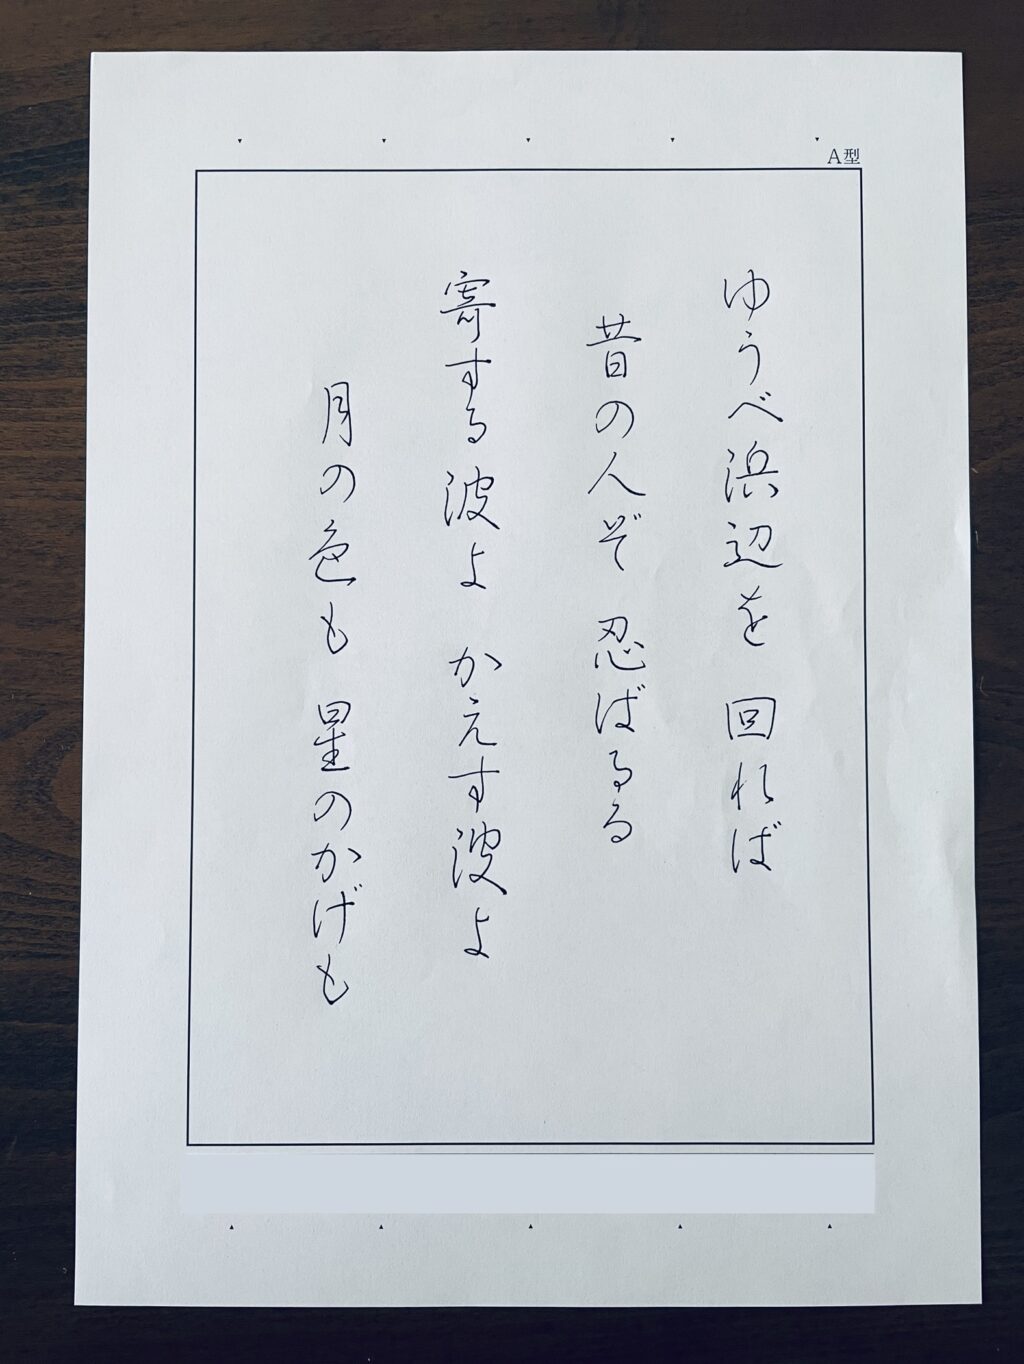 A型
ゆうべ浜辺を 回れば
昔の人ぞ 忍ばるる
寄する波よ かえす波よ
月の色も 星のかげも